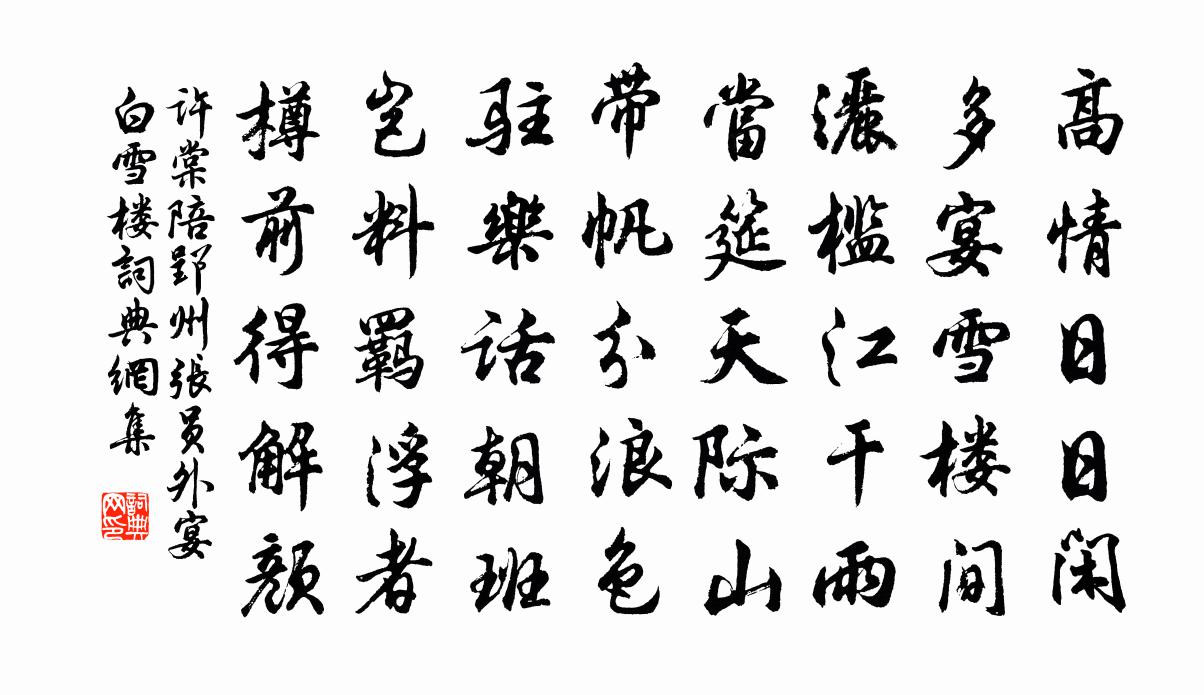 高情日日闲
多宴雪楼间
灑槛江干雨
當筵天际山
带帆分浪色
駐樂话朝班
岂料羁浮者
樽前得解颜
许棠陪郢州張员外宴
白雪楼詞典網集
詞典网印